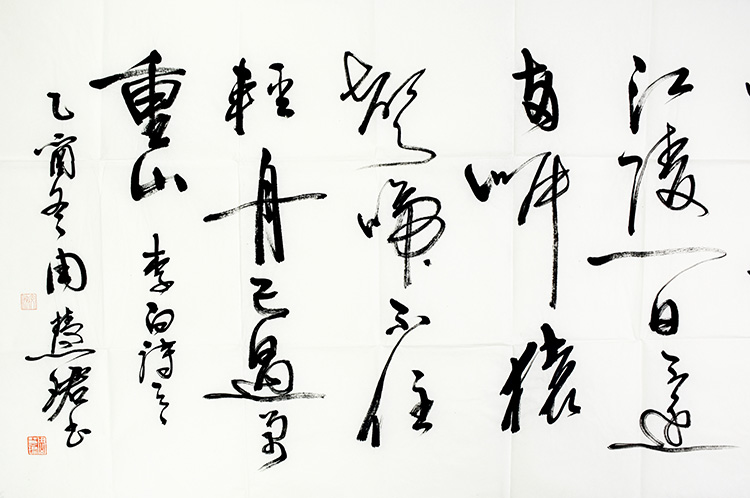 江陵一日還
兩岸猿
聲啼不住
輕舟已過萬
重山 李白詩
乙酉冬周慧珺书